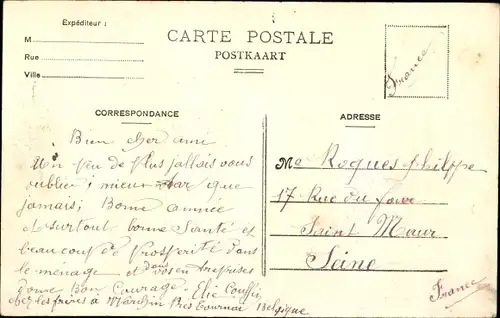 Expéditeur :
M
Rue
Ville
CARTE POSTALE
POSTKAART
France
CORRESPONDANCE
ADRESSE
Bien cher ami
Un peu de plus jallais vous
oublier; mieux tar que
jamais; Bonne année
et surtout bonne Santé et
beaucoup de Prosperité dans
le ménage et dans vos entreprises
Bon Courage. Elie
chez les frères à Près Tournai Belgique
Mr Roques Philippe
17 Rue du Four
Saint Maur
Seine
France